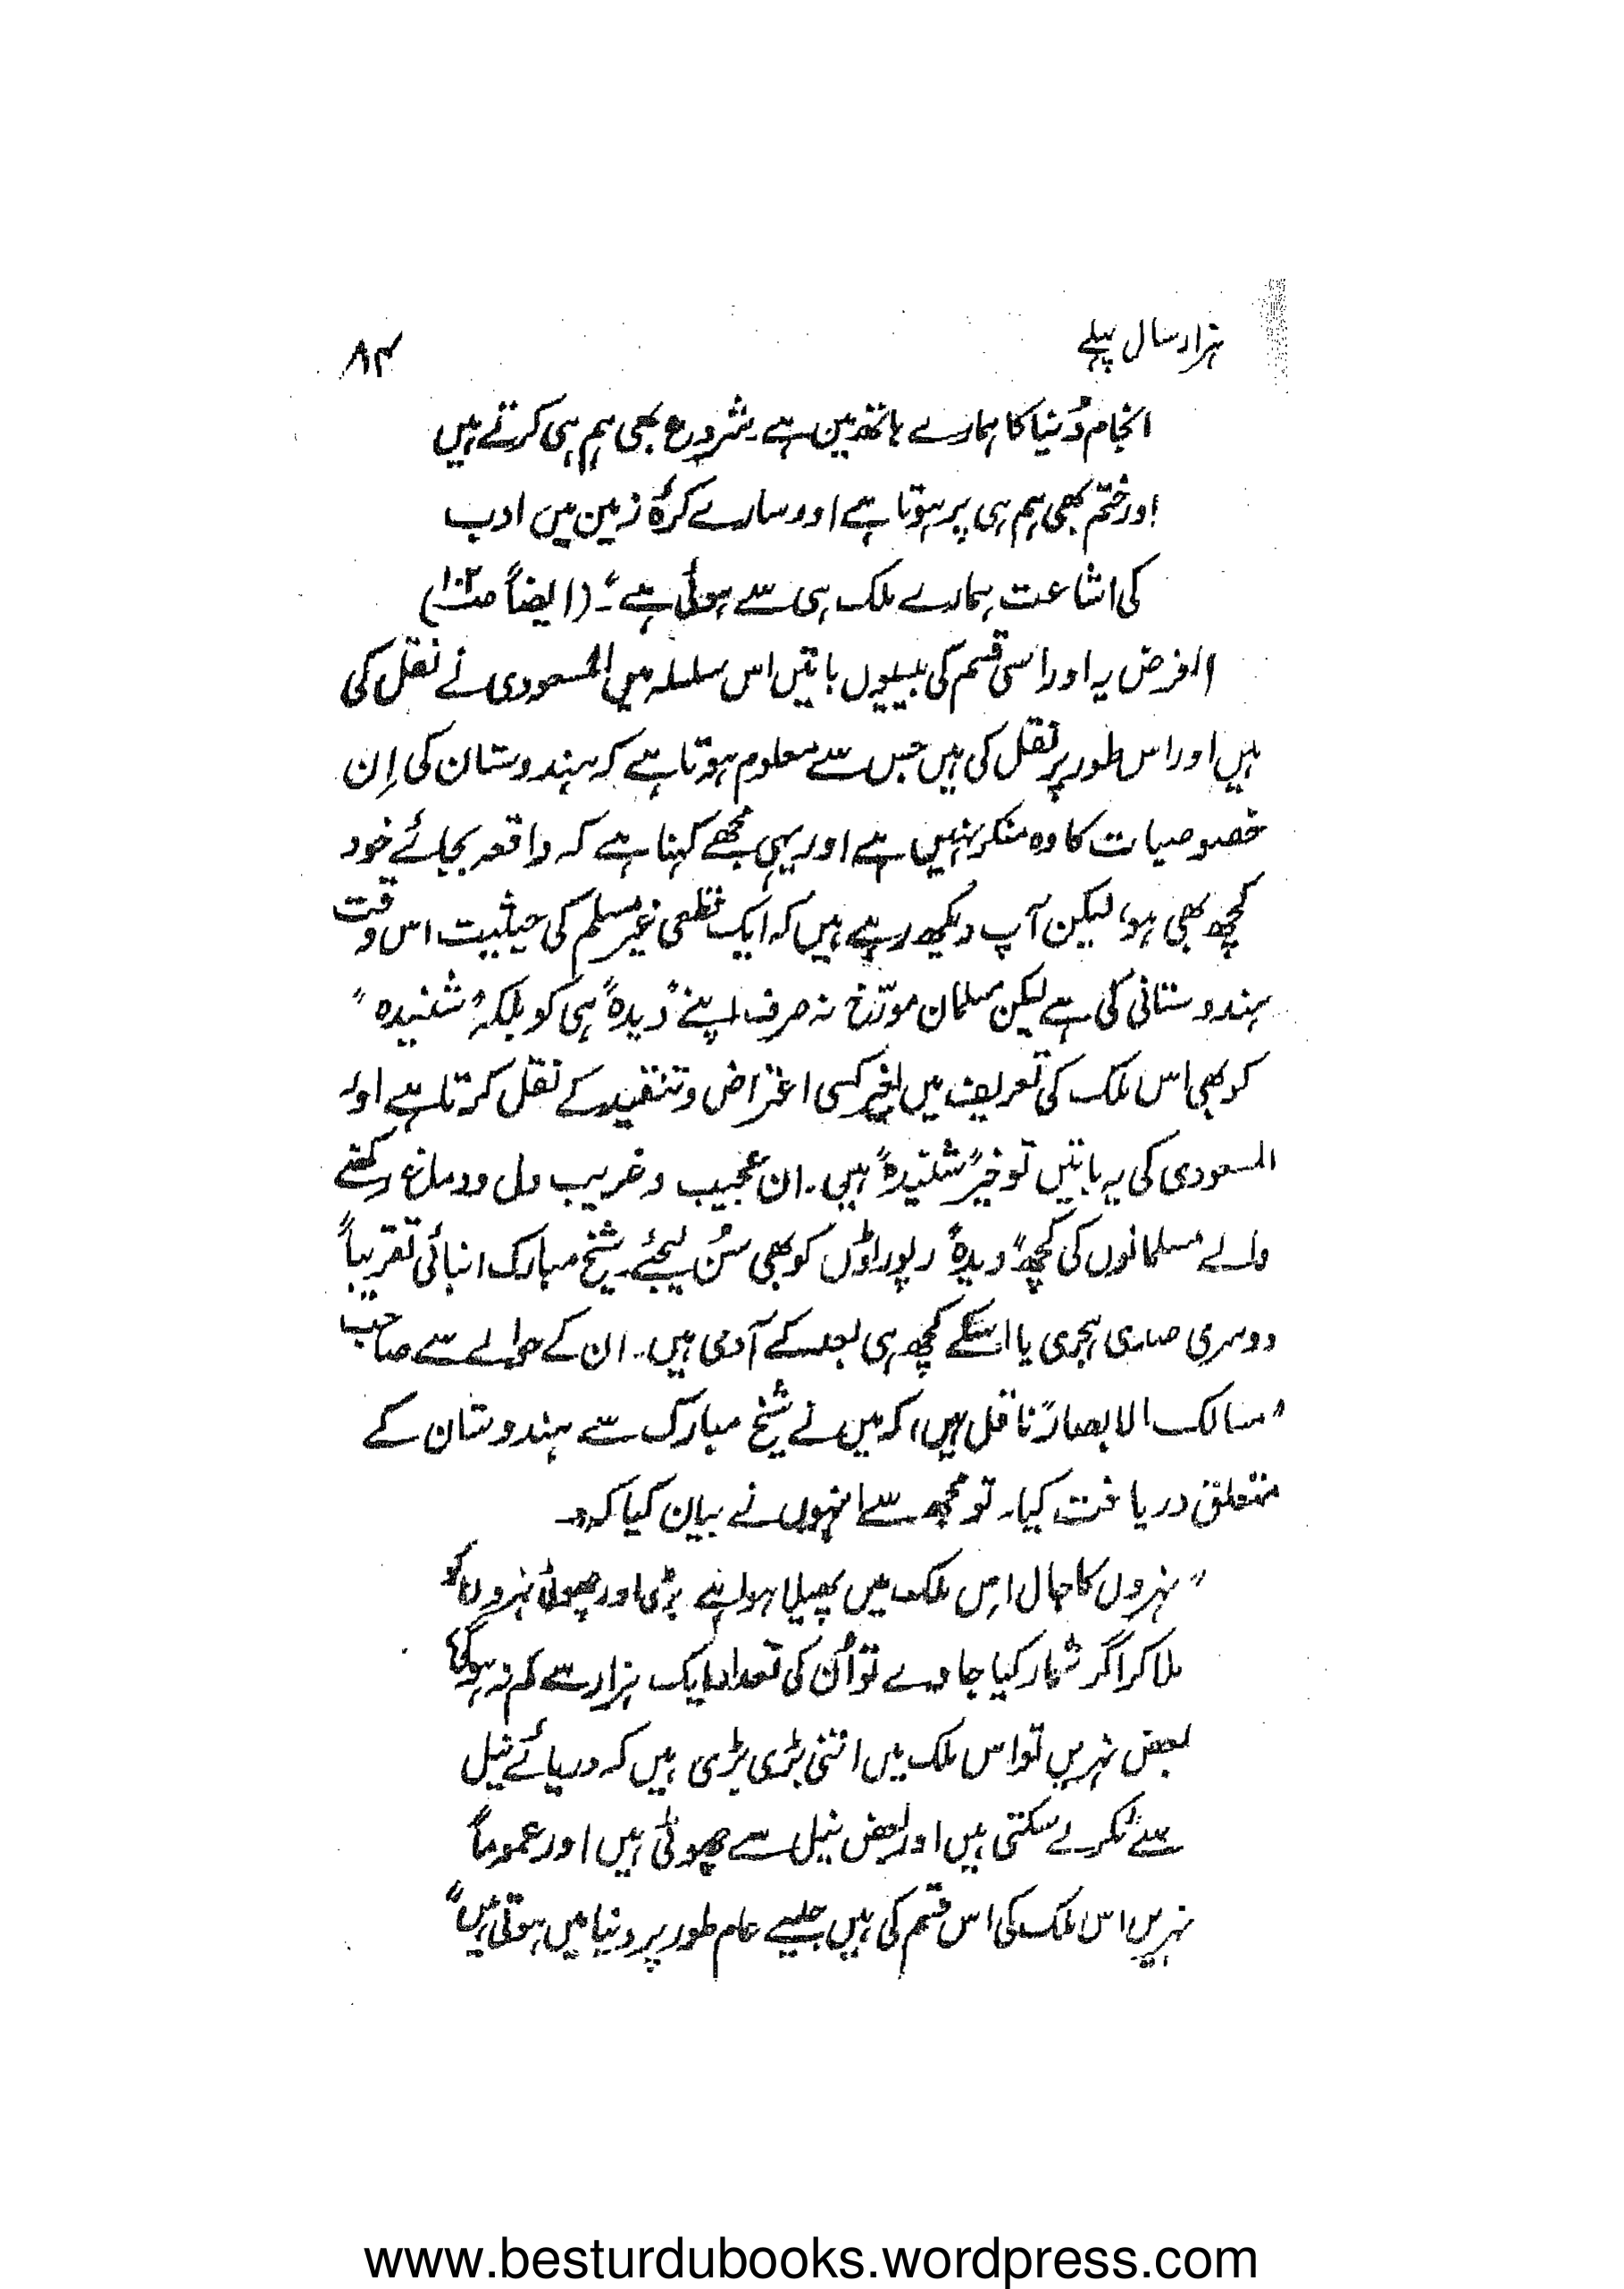 ہزار سال پہلے
۸۴
انجام دُنیا کا ہمارے ہاتھ میں ہے۔ شروع بھی ہم ہی کرتے ہیں
اور ختم بھی ہم ہی پر ہوتا ہے اور سارے کرۂ زمین میں ادب
کی اشاعت ہمارے ملک ہی سے ہوئی ہے"۔ (ایضاً ص۱۰۲)
الغرض یہ اور اسی قسم کی بیسیوں باتیں اس سلسلہ میں المسعودی نے نقل کی
ہیں اور اس طور پر نقل کی ہیں جس سے معلوم ہوتا ہے کہ ہندوستان کی اِن
خصوصیات کا وہ منکر نہیں ہے اور یہی مجھے کہنا ہے کہ واقعہ بجائے خود
کچھ بھی ہو، لیکن آپ دیکھ رہے ہیں کہ ایک قطعی غیر مسلم کی حیثیت اس وقت
ہندوستانی کی ہے لیکن مسلمان مورّخ نہ صرف اپنے "دیدہ" ہی کو بلکہ "شنیدہ"
کو بھی اس ملک کی تعریف میں بغیر کسی اعتراض و تنقید کے نقل کرتا ہے اور
المسعودی کی یہ باتیں تو خیر "شنیدہ" ہیں۔ ان عجیب و غریب دل و دماغ رکھنے
والے مسلمانوں کی کچھ "دیدہ" رپورٹوں کو بھی سُن لیجئے۔ شیخ مبارک انبائی تقریباً
دوسری صدی ہجری یا اسکے کچھ ہی بعد کے آدمی ہیں۔ ان کے حوالے سے صاحب
"مسالک الابصار" ناقل ہیں، کہ میں نے شیخ مبارک سے ہندوستان کے
متعلق دریافت کیا۔ تو مجھ سے انہوں نے بیان کیا کہ:۔
"نہروں کا جال اس ملک میں پھیلا ہوا ہے بڑی اور چھوٹی نہروں کو
ملا کر اگر شمار کیا جاوے تو اُن کی تعداد ایک ہزار سے کم نہ ہوگی،
بعض نہریں تو اس ملک میں اتنی بڑی بڑی ہیں کہ دریائے نیل
سے ٹکر لے سکتی ہیں اور بعض نیل سے چھوٹی ہیں اور عموماً
نہریں اس ملک کی اس قسم کی ہیں جیسے عام طور پر دنیا میں ہوتی ہیں"
www.besturdubooks.wordpress.com